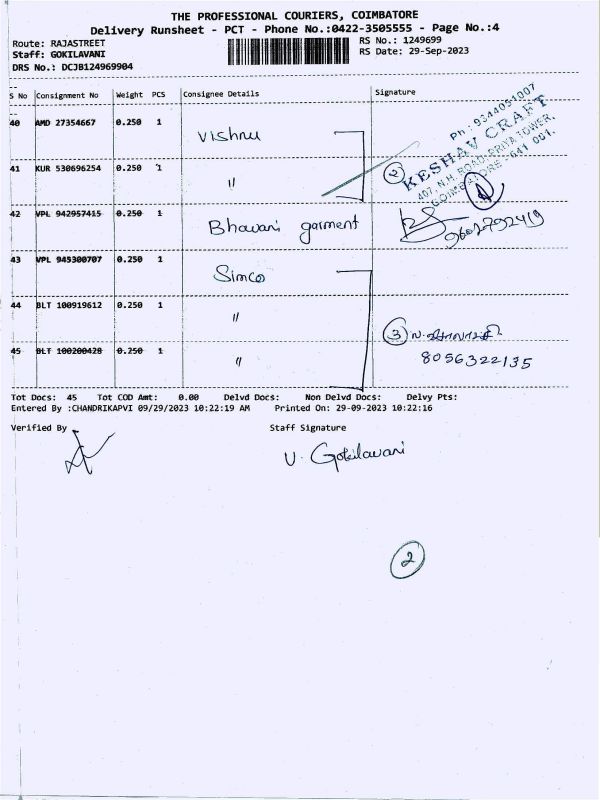 THE PROFESSIONAL COURIERS, COIMBATORE
Delivery Runsheet - PCT - Phone No.:0422-3505555 - Page No.:4
Route: RAJASTREET
RS No.: 1249699
Staff: GOKILAVANI
RS Date: 29-Sep-2023
DRS No.: DCJB124969904
S No Consignment No Weight PCS Consignee Details Signature
40 AMD 27354667 0.250 1 Vishnu
Ph : 9344051007
KESHAV CRAFT
407, N.H. ROAD, PRIYA TOWER,
COIMBATORE - 641 001.
41 KUR 530696254 0.250 1 〃 2
42 VPL 942957415 0.250 1 Bhavani garment 9602792419
43 VPL 945300707 0.250 1 Simco
44 BLT 100919612 0.250 1 〃 3
45 BLT 100200428 0.250 1 〃 8056322135
Tot Docs: 45 Tot COD Amt: 0.00 Delvd Docs: Non Delvd Docs: Delvy Pts:
Entered By :CHANDRIKAPVI 09/29/2023 10:22:19 AM Printed On: 29-09-2023 10:22:16
Verified By Staff Signature
V. Gokilavani
2